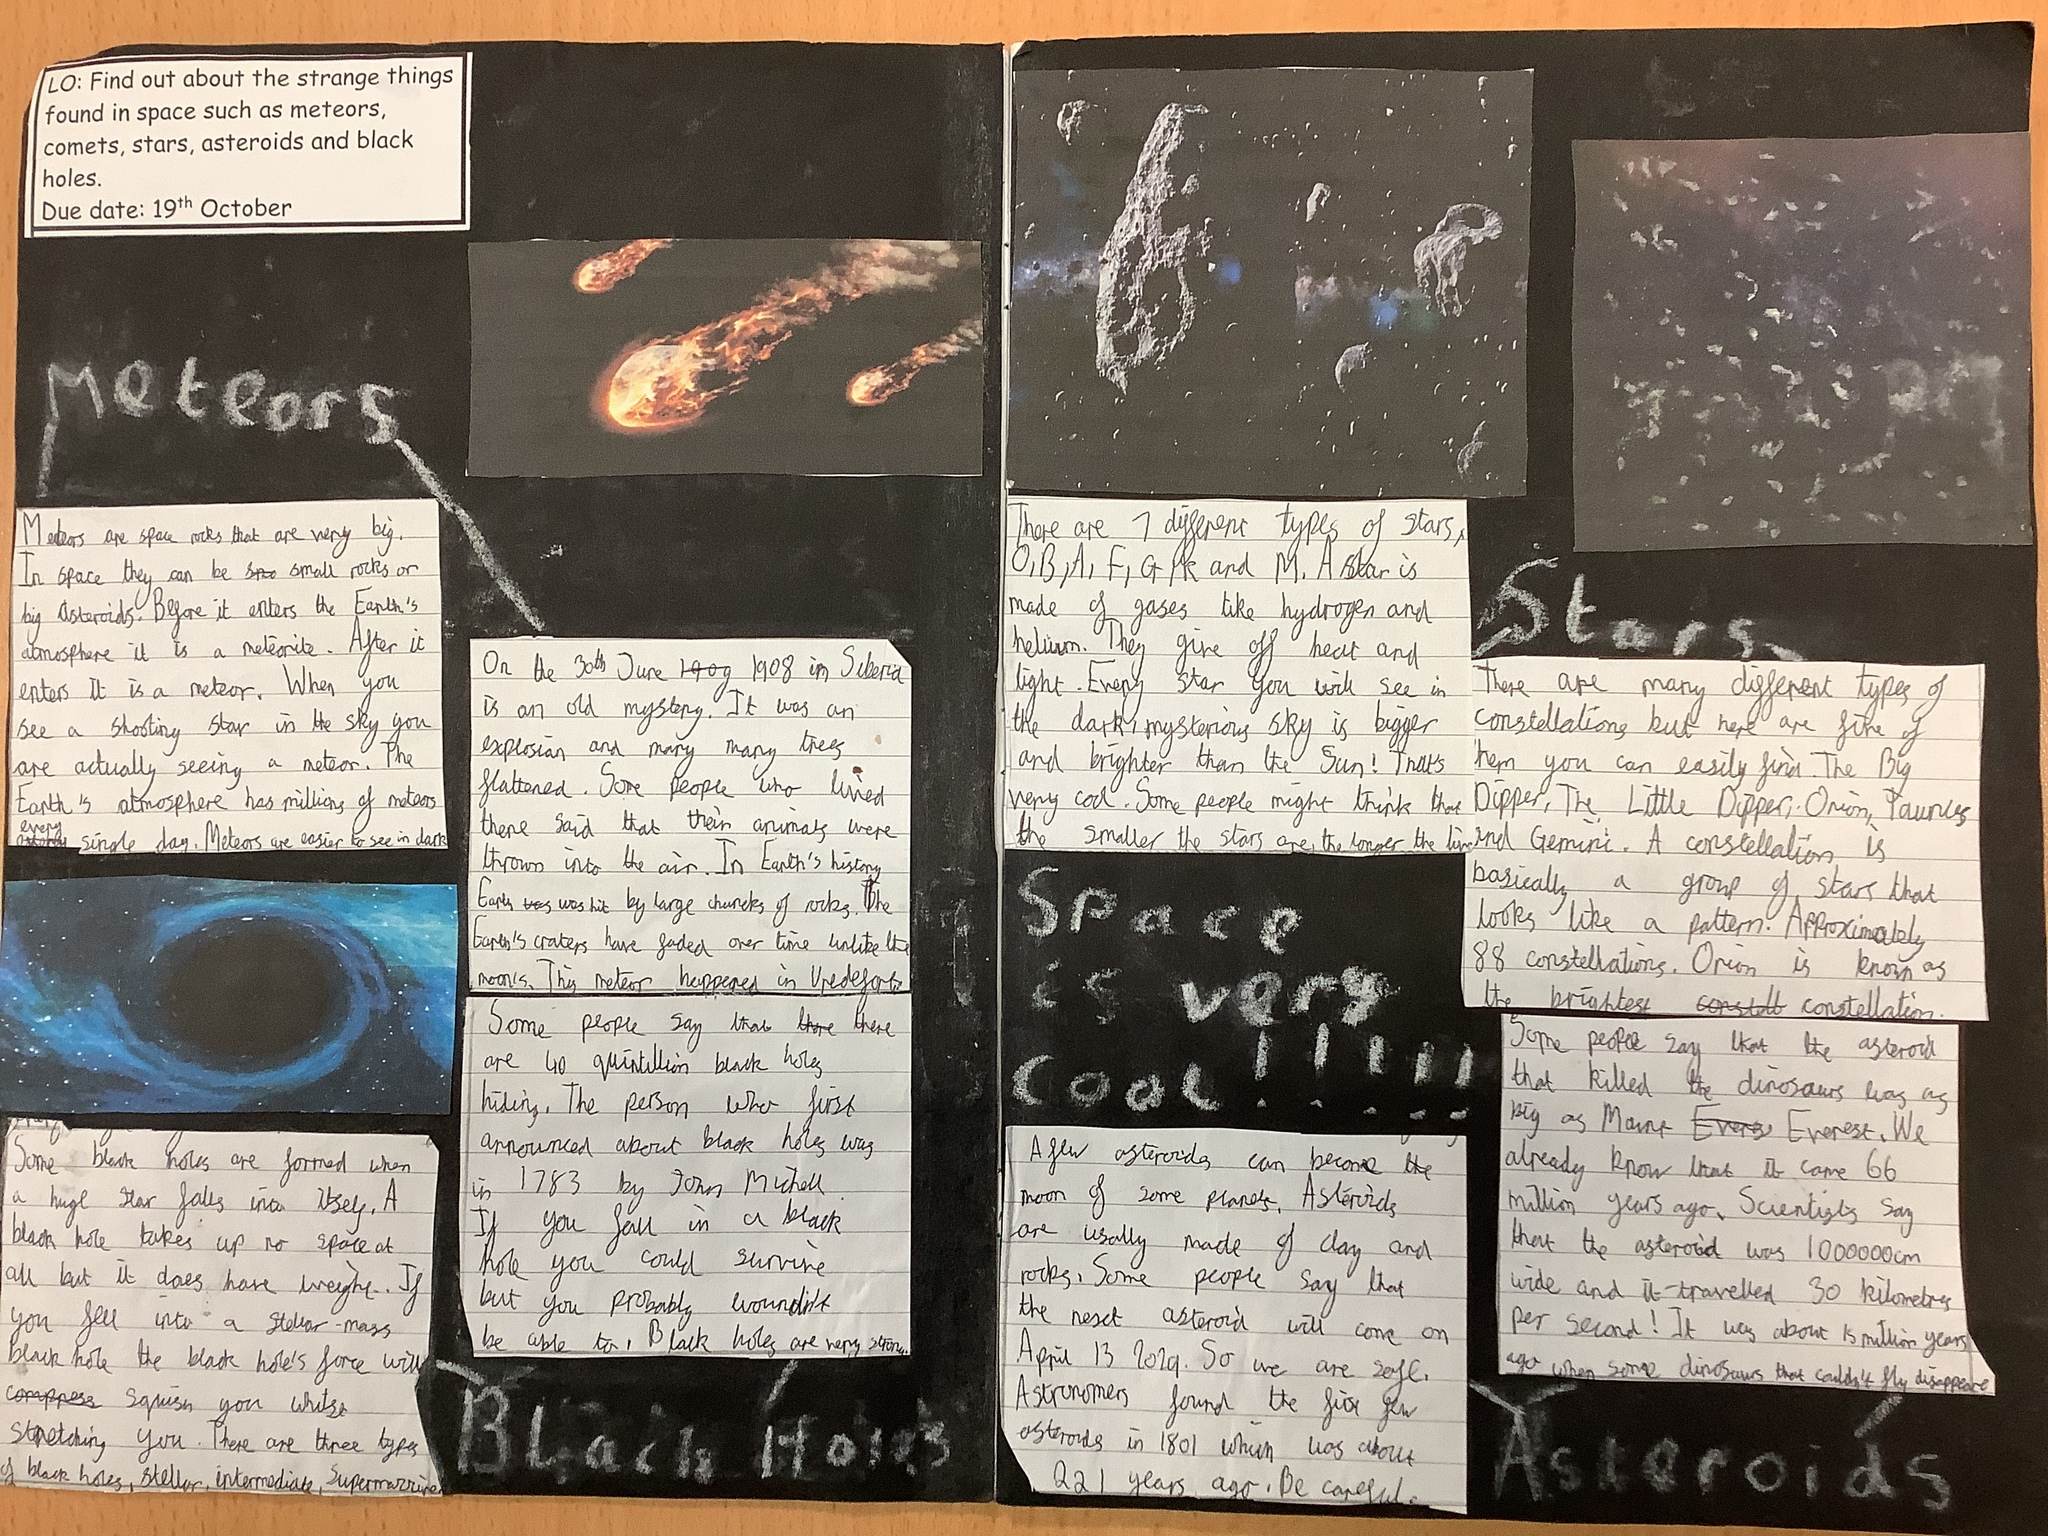 LO: Find out about the strange things
found in space such as meteors,
comets, stars, asteroids and black
holes.
Due date: 19th October
Meteors
Meteors are space rocks that are very big.
In space they can be small rocks or
big asteroids. Before it enters the Earth's
atmosphere it is a meteorite. After it
enters it is a meteor. When you
see a shooting star in the sky you
are actually seeing a meteor. The
Earth's atmosphere has millions of meteors
every single day. Meteors are easier to see in dark
On the 30th June 1908 in Siberia
is an old mystery. It was an
explosian and many many trees
flattened. Some people who lived
there said that their animals were
thrown into the air. In Earth's history
Earth was hit by large chuncks of rocks. The
Earth's craters have faded over time unlike the
moon's. This meteor happened in Vredefort
Some people say that there
are 40 quintillion black holes
hiding. The person who first
announced about black holes was
in 1783 by John Michell.
If you fall in a black
hole you could survive
but you probably wouldn't
be able to. Black holes are very strong.
Some black holes are formed when
a huge star falls into itself. A
black hole takes up no space at
all but it does have weight. If
you fell into a stellar-mass
black hole the black hole's force will
compress squish you whilst
stretching you. There are three types
of black holes, stellar, intermediate, Supermarrive
Black Holes
There are 7 different types of stars,
O, B, A, F, G, K and M. A star is
made of gases like hydrogen and
helium. They give off heat and
light. Every star you will see in
the dark, mysterious sky is bigger
and brighter than the Sun! That's
very cool. Some people might think that
the smaller the stars are, the longer the live
Stars
There are many different types of
constellations but here are five of
them you can easily find. The Big
Dipper, The Little Dipper, Orion, Taurus
and Gemini. A constellation is
basically a group of stars that
looks like a pattern. Approximately
88 constellations. Orion is known as
the brightest constell constellation.
Space
is very
cool!!!!!!
A few asteroids can become the
moon of some planets. Asteroids
are usally made of clay and
rocks. Some people say that
the next asteroid will come on
April 13 2029. So we are safe.
Astronomers found the first few
asteroids in 1801 which was about
221 years ago. Be careful.
Some people say that the asteroid
that killed the dinosaurs was as
big as Mount Everest. We
already know that it came 66
million years ago. Scientists say
that the asteroid was 1000000cm
wide and it travelled 30 kilometres
per second! It was about 15 million years
ago when some dinosaurs that couldn't fly disappeare
Asteroids